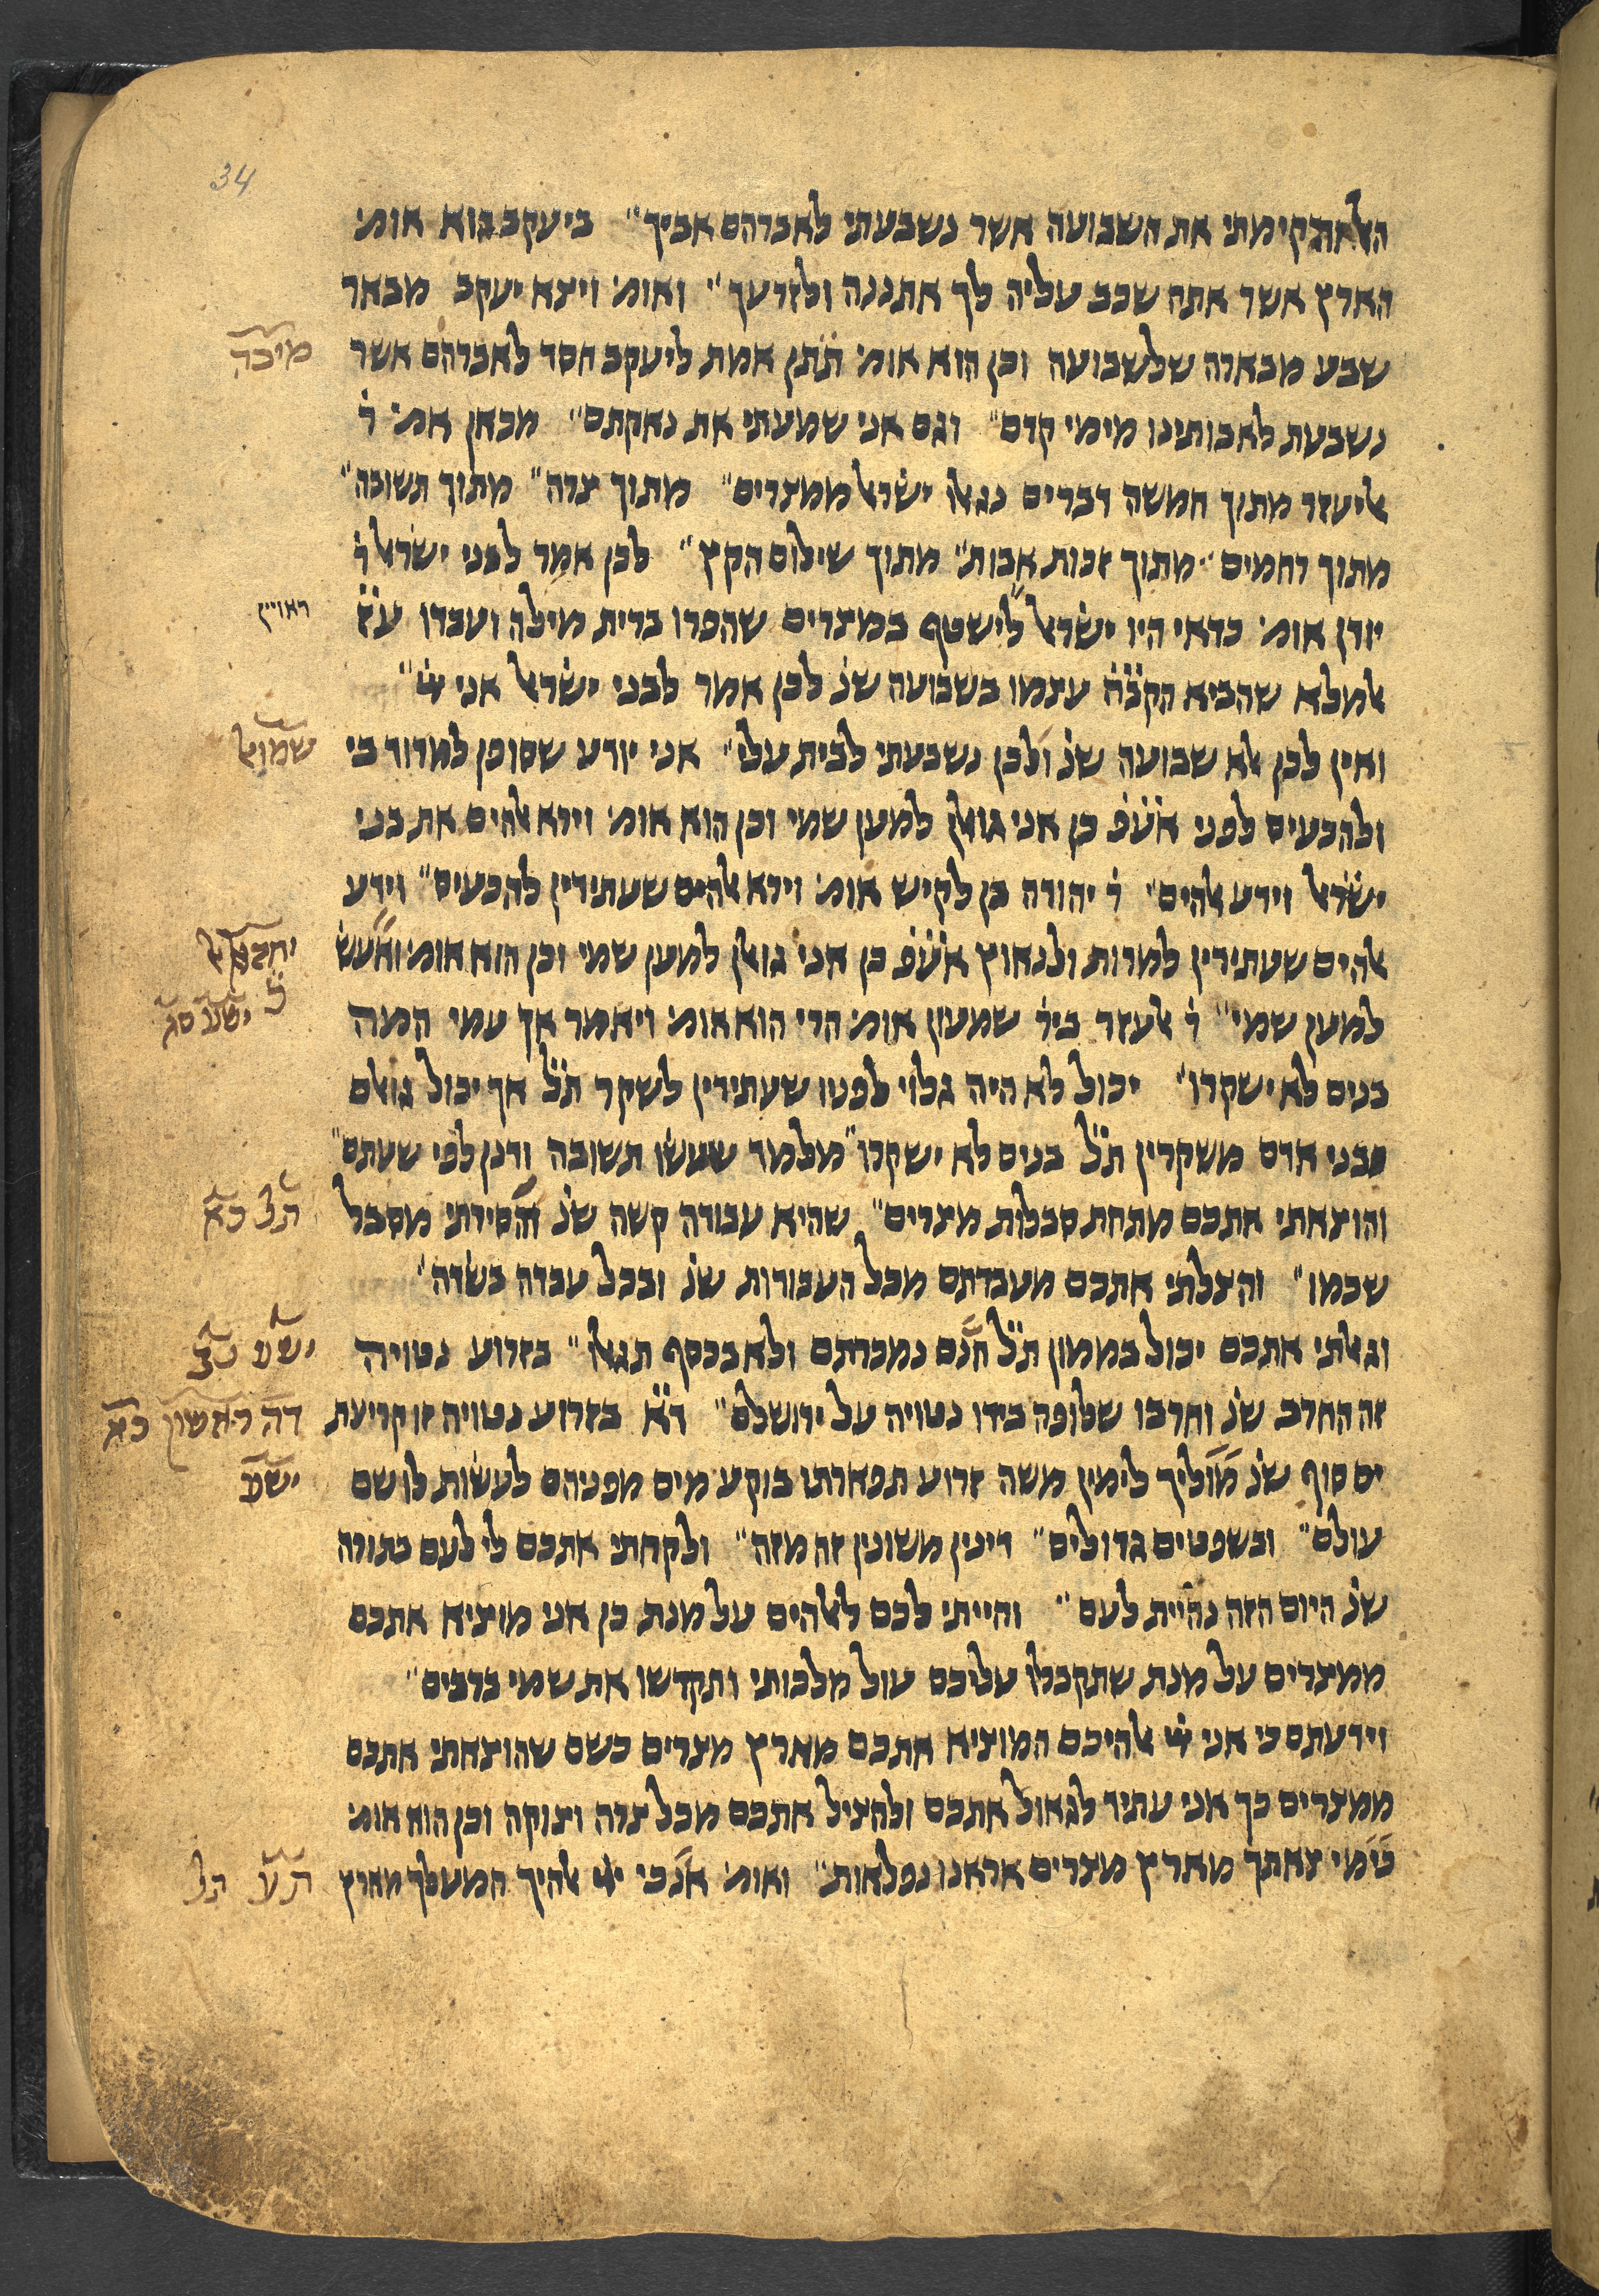 34
האל והקימתי את השבועה אשר נשבעתי לאברהם אביך״ ביעקב הוא אומ׳
הארץ אשר אתה שכב עליה לך אתננה ולזרעך״ ואומ׳ ויצא יעקב מבאר
שבע מבארה שלשבועה וכן הוא אומ׳ תתן אמת ליעקב חסד לאברהם אשר
מיכה
נשבעת לאבותינו מימי קדם״ וגם אני שמעתי את נאקתם״ מכאן אמ׳ ר׳
אליעזר מתוך חמשה דברים נגאלו ישראל ממצרים״ מתוך צרה״ מתוך תשובה״
מתוך רחמים״ מתוך זכות אבות״ מתוך שילום הקץ״ לכן אמר לבני ישראל ר׳
יודן אומ׳ כדאי היו ישראל לישטף במצרים שהפרו ברית מילה ועבדו ע״ז
ראויין
אלמלא שהביא הקב״ה עצמו בשבועה שנ׳ לכן אמר לבני ישראל אני ייי״
ואין לכן אלא שבועה שנ׳ ולכן נשבעתי לבית עלי״ אני יודע שסופן למרוד בי
שמואל
ולהכעיס לפני אעפ׳ כן אני גואלן למען שמי וכן הוא אומ׳ וירא אלהים את בני
ישראל וידע אלהים״ ר׳ יהודה בן לקיש אומ׳ וירא אלהים שעתידין להכעיס״ וידע
אלהים שעתידין למרות ולנאוץ אעפ׳ כן אני גואלן למען שמי וכן הוא אומ׳ ואעש
יחזקאל
כ׳
למען שמי״ ר׳ אלעזר ביר׳ שמעון אומ׳ הרי הוא אומ׳ ויאמר אך עמי המה
ישע׳ סג
בנים לא ישקרו״ יכול לא היה גלוי לפניו שעתידין לשקר ת״ל אך יכול גואלם
כבני אדם משקרין ת״ל בנים לא ישקרו״ מלמד שעשו תשובה ודנן לפי שעתם״
והוצאתי אתכם מתחת סבלות מצרים״ שהיא עבודה קשה שנ׳ הסירתי מסבל
שכמו״ והצלתי אתכם מעבדתם מכל העבודות שנ׳ ובכל עבדה בשדה״
וגאלתי אתכם יכול בממון ת״ל חנם נמכרתם ולא בכסף תגאלו״ בזרוע נטויה
ישע׳ נב
זה החרב שנ׳ וחרבו שלופה בידו נטויה על ירושלם״ ד״א בזרוע נטויה זו קריעת
דה ראשון כא
ים סוף שנ׳ מוליך לימין משה זרוע תפארתו בוקע מים מפניהם לעשות לו שם
ישע׳
עולם״ ובשפטים גדולים״ דינין משונין זה מזה״ ולקחתי אתכם לי לעם בתורה
שנ׳ היום הזה נהיית לעם״ והייתי לכם לאלהים על מנת כן אני מוציא אתכם
ממצרים על מנת שתקבלו עליכם עול מלכותי ותקדשו את שמי ברבים״
וידעתם כי אני ייי אלהיכם המוציא אתכם מארץ מצרים כשם שהוצאתי אתכם
ממצרים כך אני עתיד לגאול אתכם ולהציל אתכם מכל צרה וצוקה וכן הוא אומ׳
כימי צאתך מארץ מצרים אראנו נפלאות״ ואומ׳ אנכי ייי אלהיך המעלך מארץ